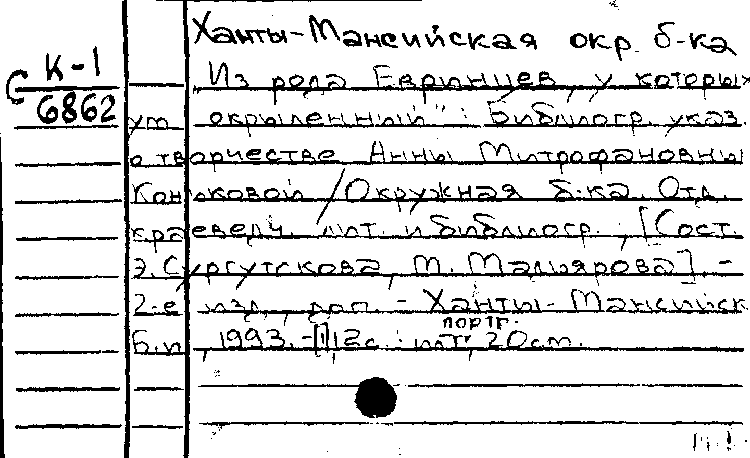 Ханты-Мансийская окр. б-ка
К-1
С 6862
„Из рода Евринцев, у которых
ум окрыленный": Библиогр. указ.
о творчестве Анны Митрофановны
Коньковой / Окружная б-ка. Отд.
краеведч. лит. и библиогр.; [Сост.
Э. Сургутскова, М. Мадьярова]. -
2-е изд., доп. - Ханты-Мансийск
Б.и., 1993. - 12с.: ил., портр.; 20см.